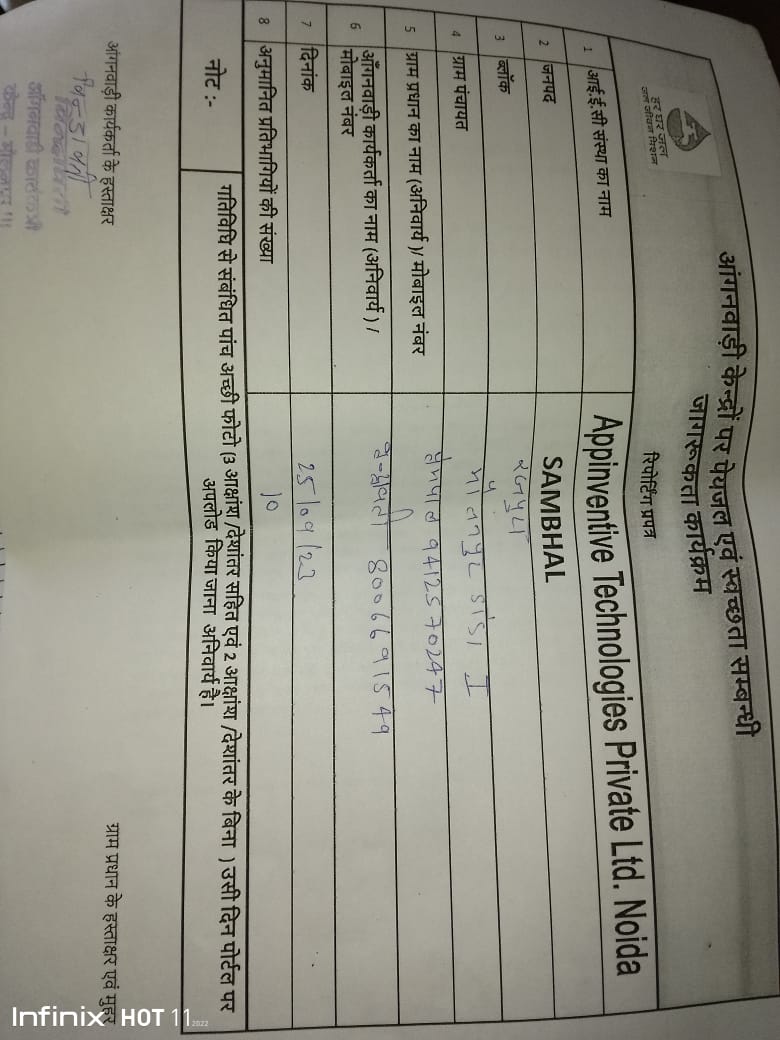 हर घर जल
जल जीवन मिशन
आंगनवाड़ी केन्द्रों पर पेयजल एवं स्वच्छता सम्बन्धी
जागरूकता कार्यक्रम
रिपोर्टिंग प्रपत्र
1 आई.ई.सी संस्था का नाम Appinventive Technologies Private Ltd. Noida
2 जनपद SAMBHAL
3 ब्लॉक रजपुरा
4 ग्राम पंचायत डांडा I
5 ग्राम प्रधान का नाम (अनिवार्य )/ मोबाइल नंबर 9412570247
6 आँगनवाड़ी कार्यकर्ता का नाम (अनिवार्य ) /
मोबाइल नंबर 8006691549
7 दिनांक
8 अनुमानित प्रतिभागियों की संख्या 10
नोट :- गतिविधि से संबंधित पांच अच्छी फोटो (3 आक्षांश /देशांतर सहित एवं 2 आक्षांश /देशांतर के बिना ) उसी दिन पोर्टल पर
अपलोड किया जाना अनिवार्य है।
आंगनवाड़ी कार्यकर्ता के हस्ताक्षर ग्राम प्रधान के हस्ताक्षर एवं मुहर
Infinix HOT 11 2022